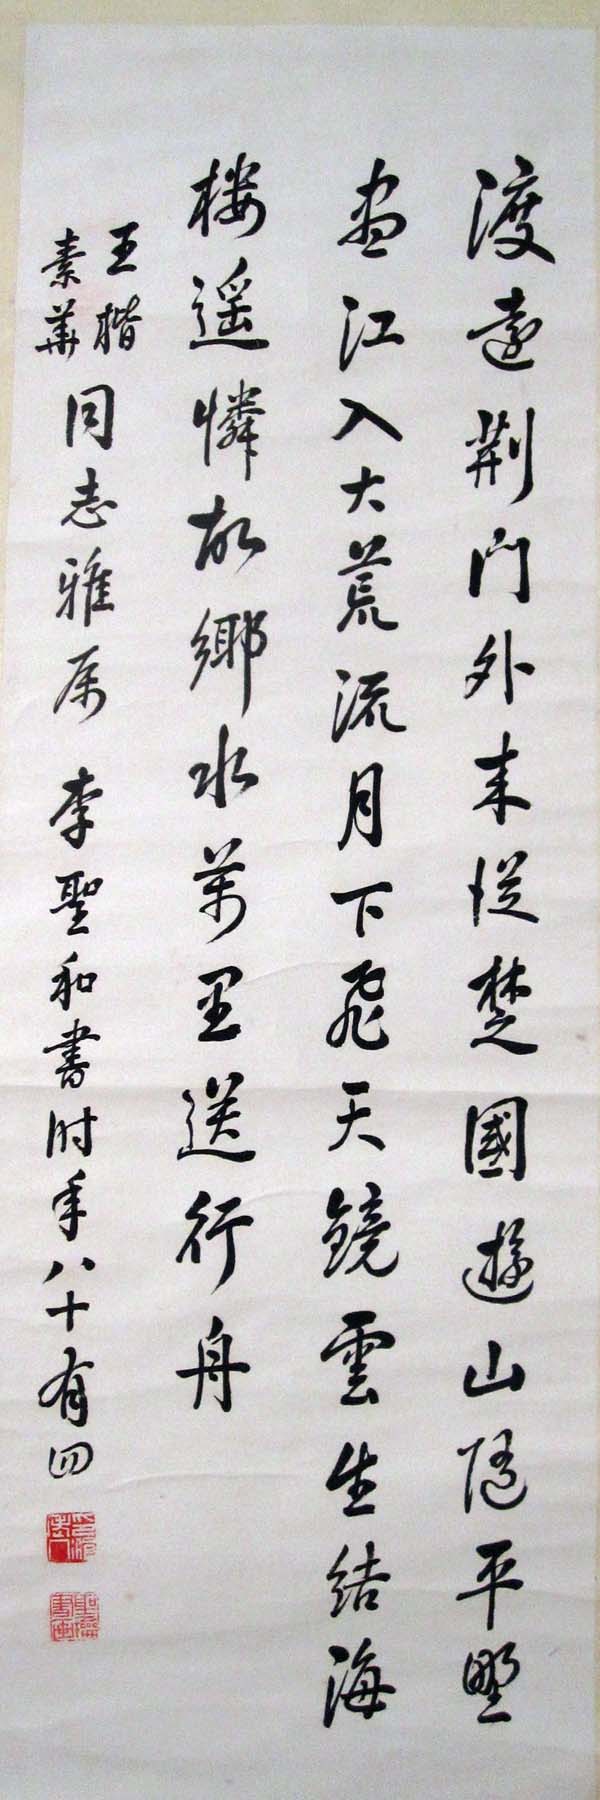 渡遠荆門外来從楚國遊山隨平野
盡江入大荒流月下飛天鏡雲生結海
樓遥憐故鄉水萬里送行舟
王楷
素華
同志雅属 李聖和書时年八十有四